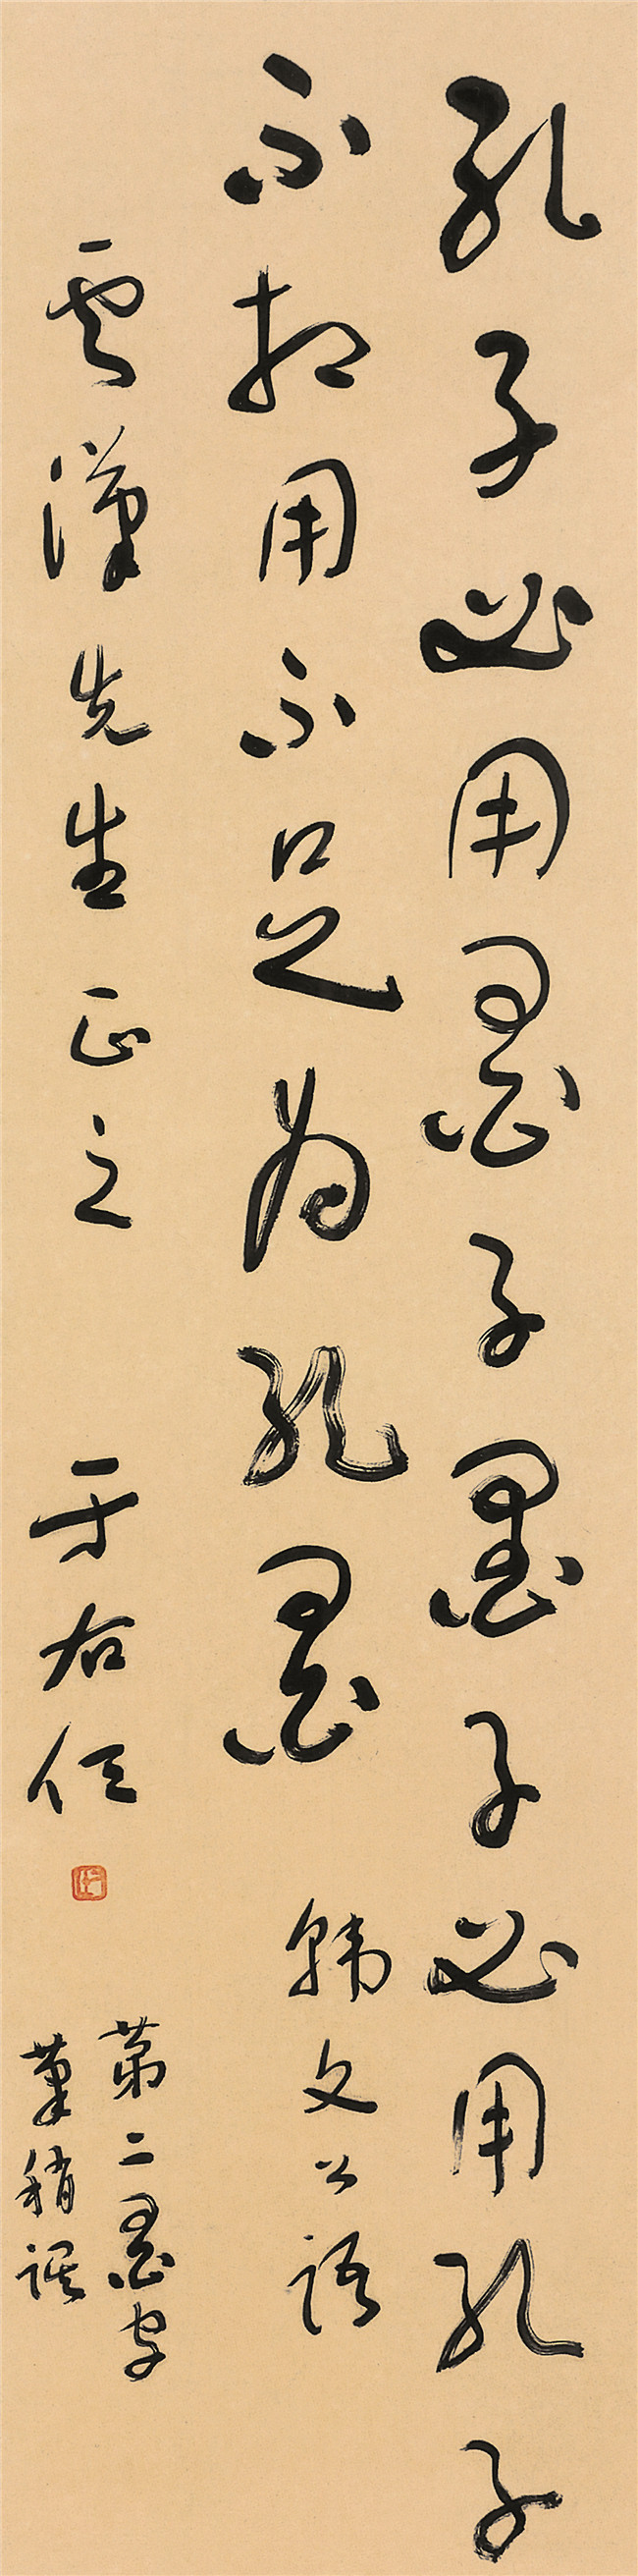 孔子必用墨子墨子必用孔子
不相用不足為孔墨
韓文公語
雲漢先生正之
于右任
第二墨字
筆稍誤